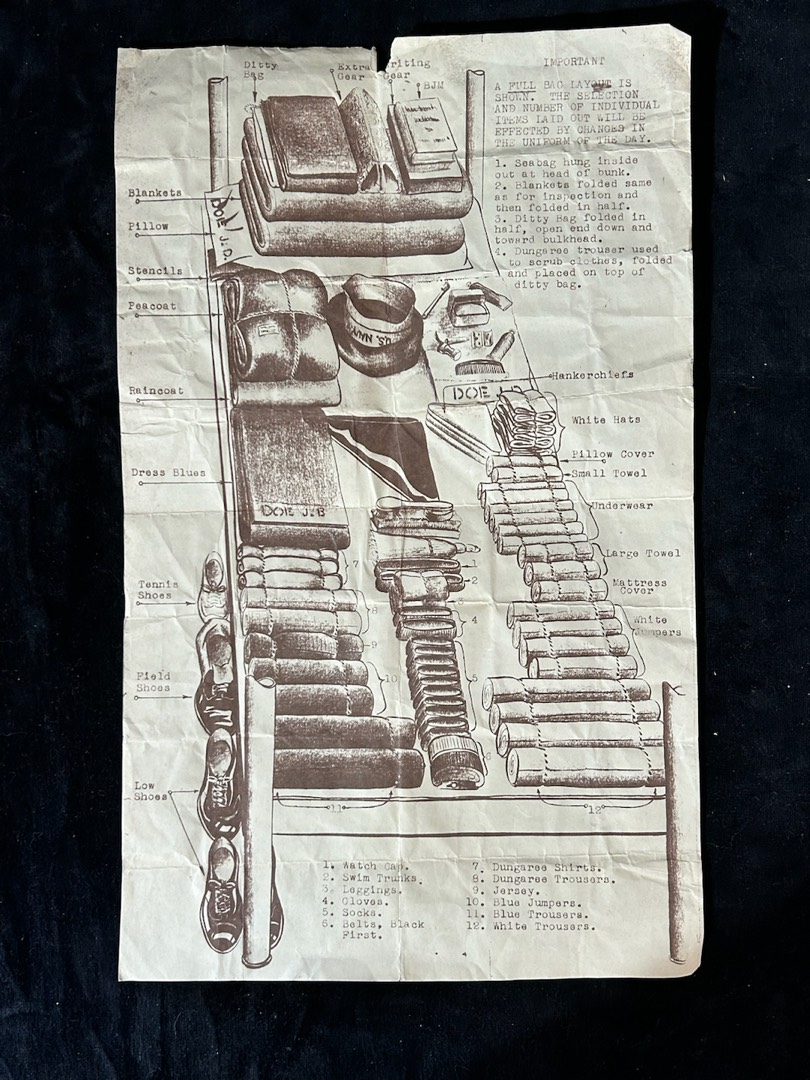 Ditty
Bag
Extra
Gear
riting
Gear
BJM
IMPORTANT
A FULL BAG LAYOUT IS
SHOWN. THE SELECTION
AND NUMBER OF INDIVIDUAL
ITEMS LAID OUT WILL BE
EFFECTED BY CHANGES IN
THE UNIFORM OF THE DAY.
1. Seabag hung inside
out at head of bunk.
2. Blankets folded same
as for inspection and
then folded in half.
3. Ditty Bag folded in
half, open end down and
toward bulkhead.
4. Dungaree trouser used
to scrub clothes, folded
and placed on top of
ditty bag.
Blankets
Pillow
DOE J.D.
Stencils
Peacoat
U.S. NAVY
Hankerchiefs
DOE
Raincoat
White Hats
Pillow Cover
Small Towel
Dress Blues
Underwear
DOE J.B
Large Towel
7
1
2
Tennis
Shoes
Mattress
Cover
8
4
White
Jumpers
9
Field
Shoes
10
5
Low
Shoes
11
12
1. Watch Cap.
2. Swim Trunks.
3. Leggings.
4. Gloves.
5. Socks.
6. Belts, Black
First.
7. Dungaree Shirts.
8. Dungaree Trousers.
9. Jersey.
10. Blue Jumpers.
11. Blue Trousers.
12. White Trousers.